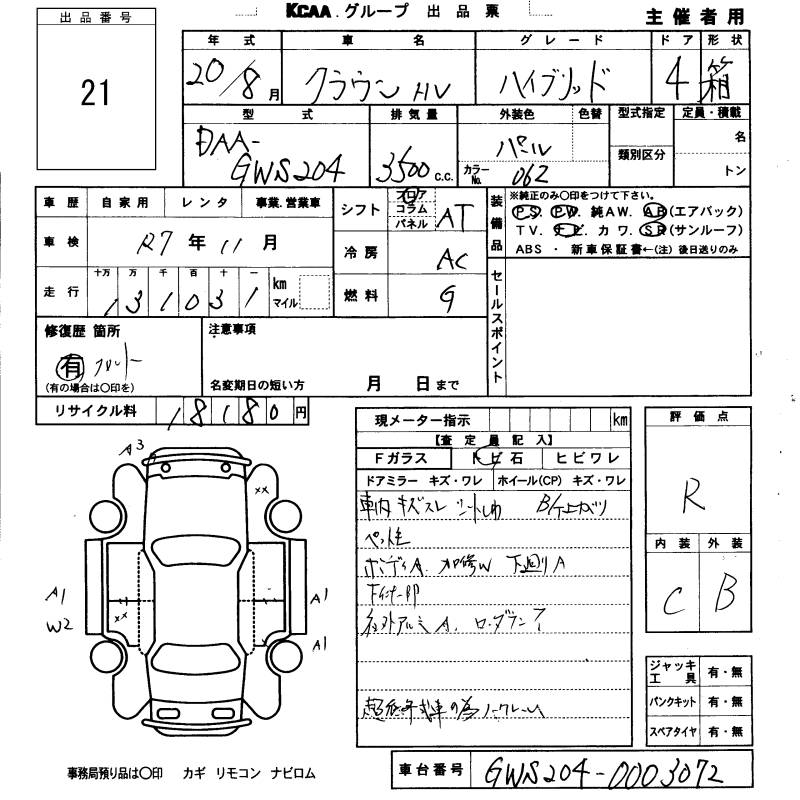 KCAA.グループ 出品票
主催者用
出品番号
21
年式 車名 グレード ドア 形状
20/8月 クラウン HV ハイブリッド 4 箱
型式 排気量 外装色 色替 型式指定 定員・積載
DAA-GWS204 3500c.c. パール 類別区分 名
カラーNo. 062 トン
車歴 自家用 レンタ 事業.営業車
車検 R7年11月
走行 十万 万 千 百 十 一 km マイル
131031
シフト フロア コラム パネル AT
冷房 AC
燃料 G
装備品
※純正のみ〇印をつけて下さい。
P.S. P.W. 純AW. AB(エアバック)
TV. ナビ. カワ. SR(サンルーフ)
ABS ・ 新車保証書←(注)後日送りのみ
セールスポイント
修復歴 箇所
有 フロント
(有の場合は〇印を)
注意事項
名変期日の短い方 月 日まで
リサイクル料 18180円
現メーター指示 km
【査定員記入】
Fガラス トビ石 ヒビワレ
ドアミラー キズ・ワレ ホイール(CP) キズ・ワレ
車内キズスレ シートしわ
ペット
ボディA. 加修W 下回りA
社外アルミA.
超低年式車の為ノークレーム
評価点
R
内装 外装
C B
ジャッキ工具 有・無
パンクキット 有・無
スペアタイヤ 有・無
A3
××
A1
W2
××
××
A1
A1
事務局預り品は〇印 カギ リモコン ナビロム
車台番号 GWS204-0003072